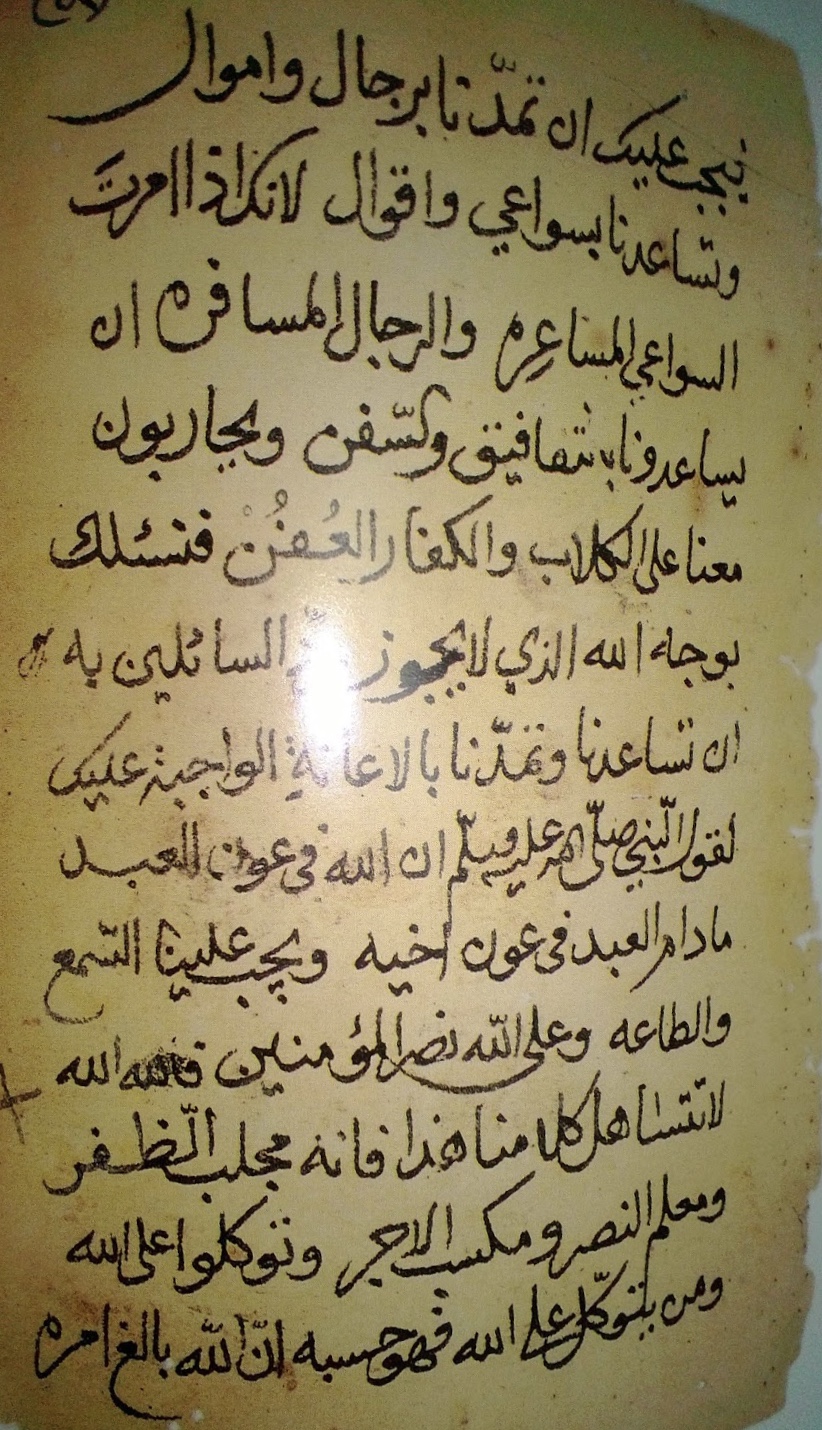 فيجب عليك ان تمدّنا برجال واموال
وتساعدنا بسواعي واقوال لانك اذا امرتَ
السواعي المساعره والرجال المسافره ان
يساعدونا وسفن ويحاربون
معنا على الكلاب والكفار العُفُنْ فنسئلك
بوجه الله الذي لا يجوز السائلين به
ان تساعدنا وتمدّنا بالاعانةِ الواجبة عليك
لقول النّبي صلّى الله عليه وسلّم ان الله في عون العبد
ما دام العبد في عون اخيه ويجب علينا السّمع
والطاعه وعلى اللّه نصر المؤمنين فالله الله
لا تتساهل كلامنا هذا فانه مجلب الّظفر
ومعلم النصر ومكسب الاجر وتوكلوا على الله
ومن يتوكّل على الله فهو حسبه انّ اللّه بالغ امره